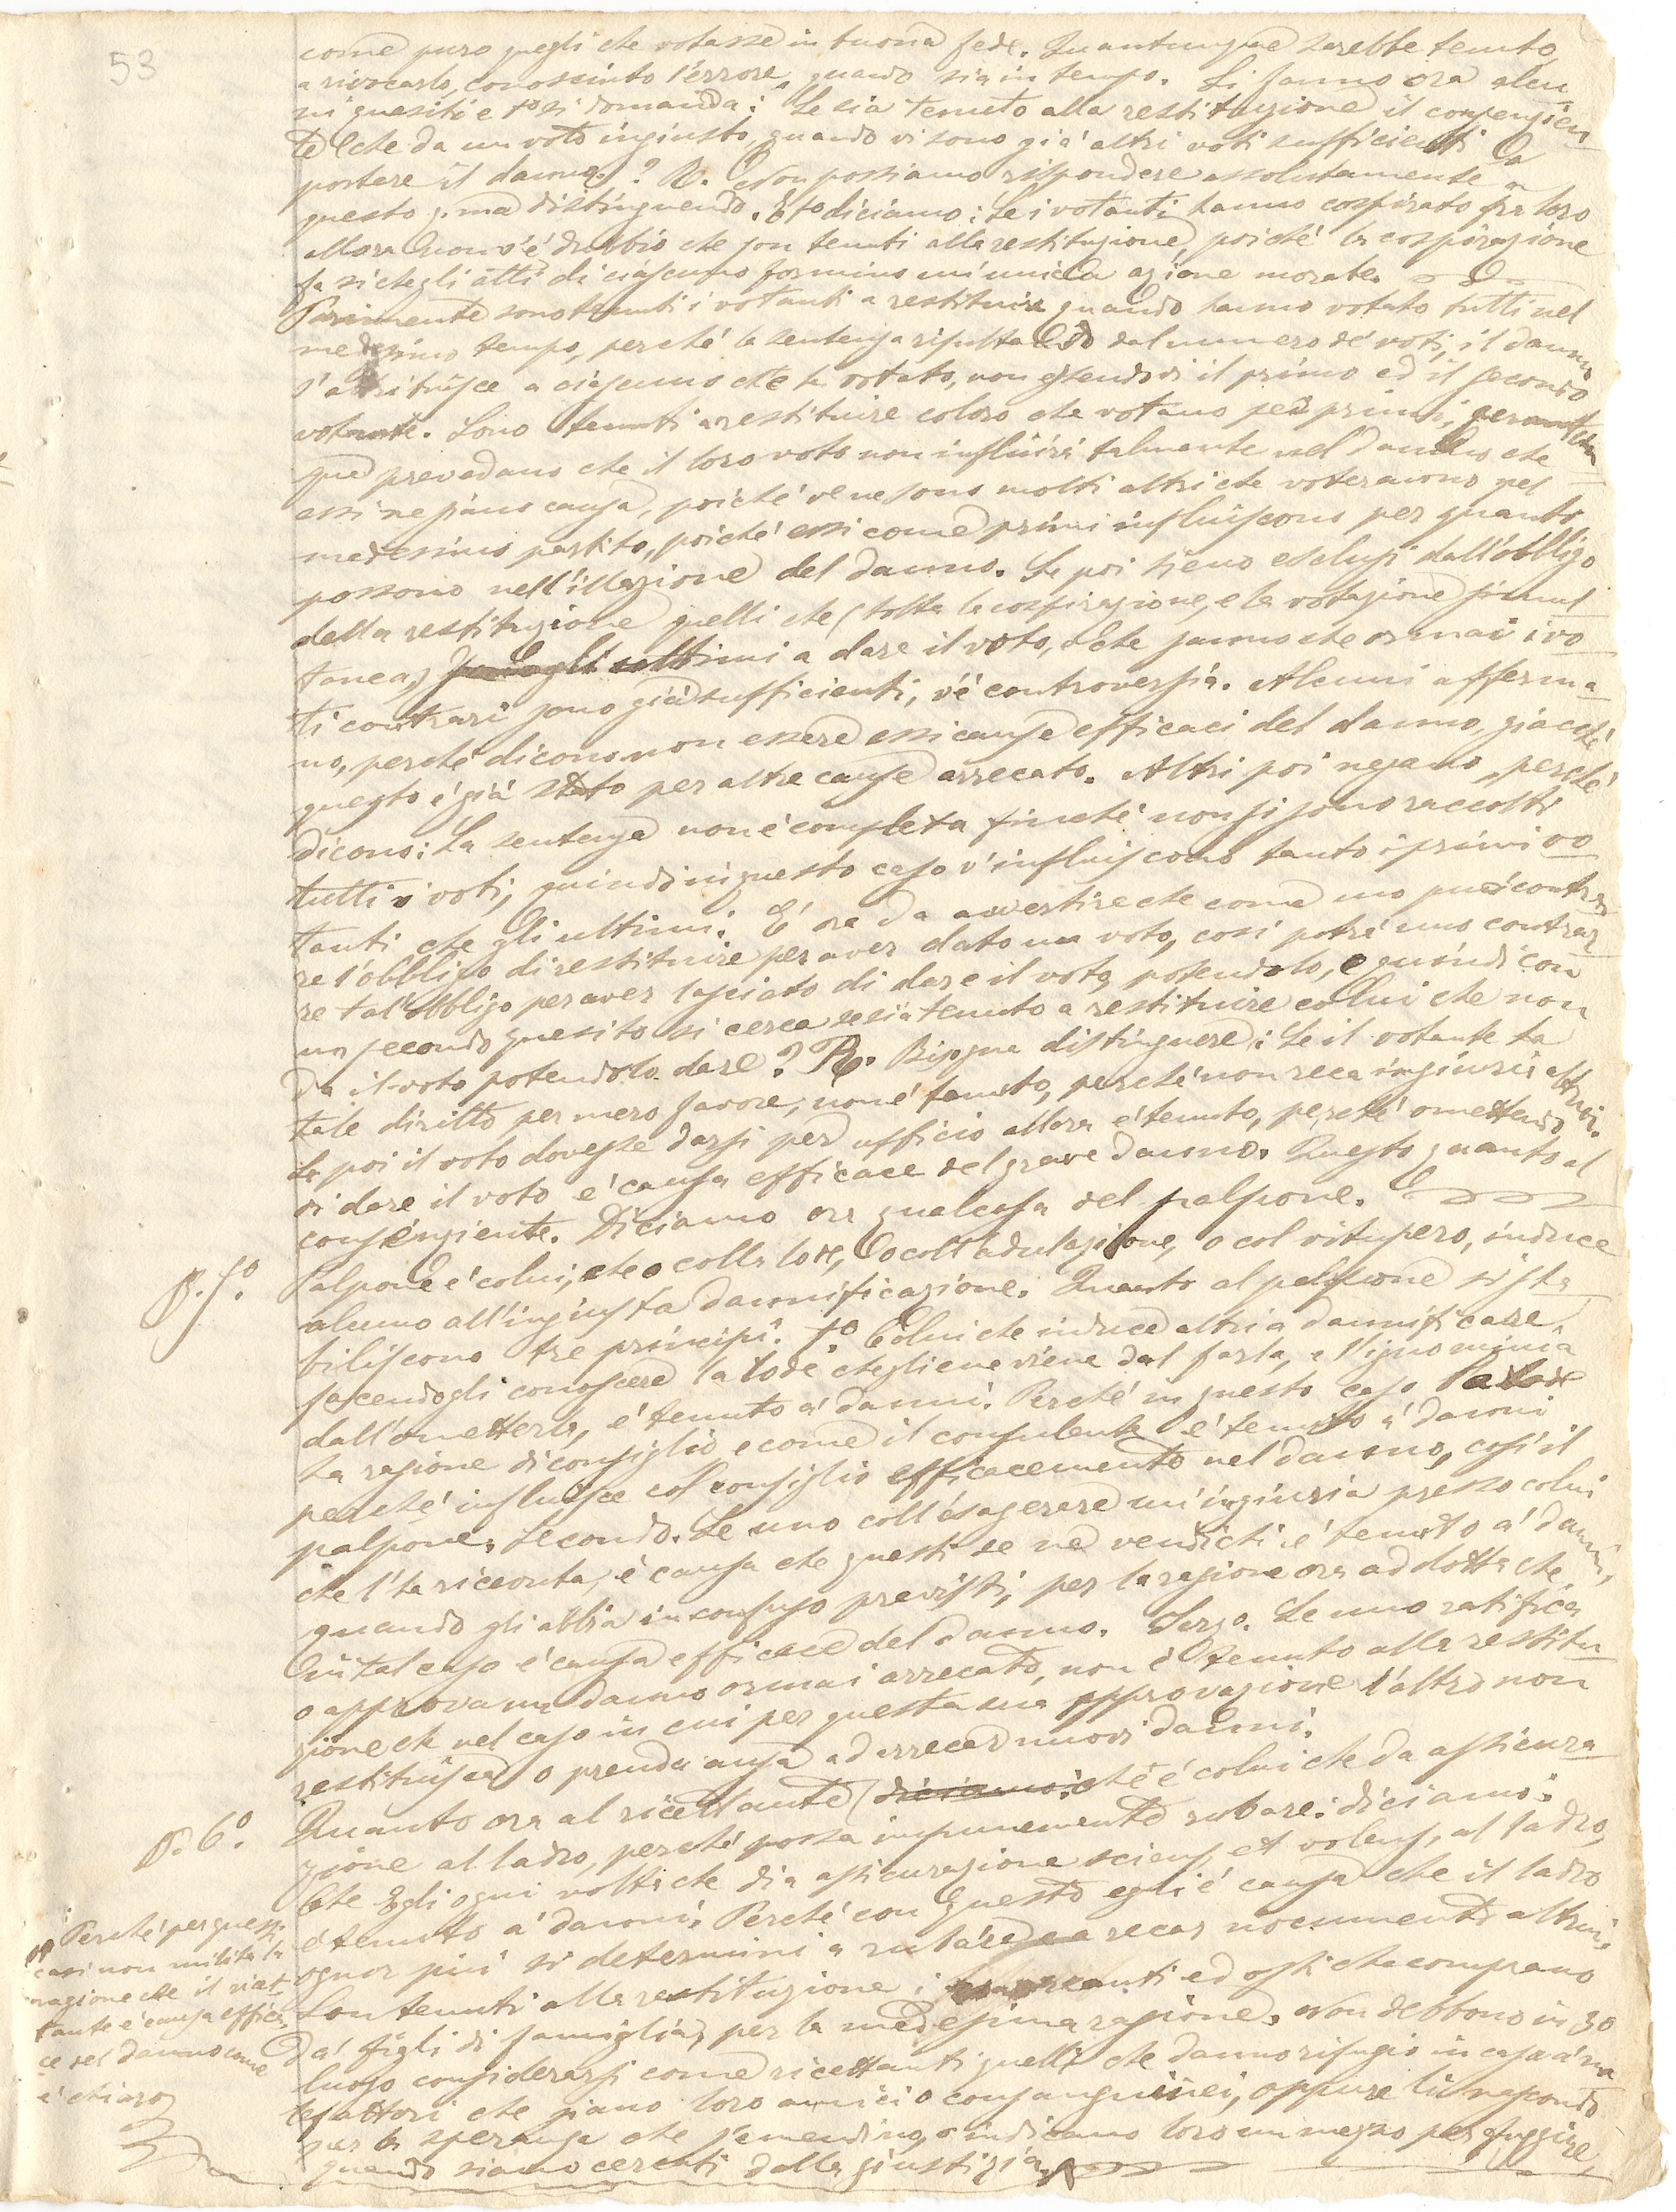 53
come puro quegli che votasse in buona fede. Quantunque sarebbe tenuto
a rivocarlo, conosciuto l'errore, quando sia in tempo. Si fanno ora alcu
ni quesiti e 1o si domanda: Se sia tenuto alla restituzione il consenzien
te che da un voto ingiusto, quando vi sono già altri voti sufficienti a
portare il danno? R. Non possiamo rispondere assolutamente a
questo q. ma distinguendo. E 1o diciamo: Se i votanti hanno cospirato fra loro
allora non v'é dubbio che son tenuti alla restituzione, poiché la cospirazione
fa si che gli atti di ciascuno formino un'unica azione morale.
Parimente sono tenuti i votanti a restituire quando hanno votato tutti nel
medesimo tempo, perché la sentenza risultando dal numero de' voti, il danno
s'attribuisce a ciascuno che ha votato, non essendovi il primo ed il secondo
votante. Sono tenuti a restituire coloro che votano pei primi,
que prevedano che il loro voto non influirà talmente nel danno che
essi ne siano causa, poiché ve ne sono molti altri che voteranno pel
medesimo partito, poiché essi come primi influiscono per quanto
possono nell'illazione del danno. Se poi sieno esclusi dall'obbligo
della restituzione quelli che (tolta la cospirazione, e la votazione simul
tanea,) sono gli ultimi a dare il voto, e che sanno che oramai i vo
ti contrari sono già sufficienti, v'é controversia. Alcuni afferma
no, perché dicono non essere essi causa efficaci del danno, giacché
questo é già stato per altre cause arrecato. Altri poi negano, perché
dicono: La sentenza non é completa finché non si sono raccolti
tutti i voti, quindi in questo caso v'influiscono tanto i primi vo
tanti che gli ultimi. E' ora da avvertire che come uno può contrar
re l'obbligo di restituire per aver dato un voto, così potrà uno contrar
re tal'obbligo per aver lasciato di dare il voto potendolo, e quindi con
un secondo quesito si cerca se sia tenuto a restituire colui che non
da il voto potendolo dare? R. Bisogna distinguere: Se il votante ha
tale diritto per mero favore, non é tenuto, perché non reca ingiuria altrui.
Se poi il voto dovesse darsi per ufficio allora é tenuto, perché omettendo
di dare il voto é causa efficace del grave danno. Questo quanto al
consenziente. Diciamo ora qualcosa del palpone.
p. 5o. Palpone é colui, che o colla lode, o coll'adulazione, o col vitupero, induce
alcuno all'ingiusta damnificazione. Quanto al palpone si sta
biliscono tre principi. 1o Colui che induce altri a damnificare,
facendogli conoscere la lode che gliene viene dal farla, e l'ignominia
dall'ometterla, é tenuto a' danni. Perché in questo caso la lode
ha ragione di consiglio e come il consulente é tenuto a' danni
perché influisce col consiglio efficacemente nel danno, così il
palpone. Secondo. Se uno coll'esagerare un'ingiuria presso colui
che l'ha ricevuta, é causa che questi se ne vendichi é tenuto a' danni,
quando gli abbia in confuso previsti, per la ragione ora addotta che
in tal caso é causa efficace del danno. Terzo. Se uno ratifica
o approva un danno ormai arrecato, non é tenuto alla restitu
zione che nel caso in cui per questa sua approvazione l'altro non
restituisca o prenda ansa ad arrecar nuovi danni.
p. 6o. Quanto ora al ricettante (diciamo: che é colui che da assicura
zione al ladro, perché possa impunemente rubare: diciamo:
Che Egli ogni volta che dia assicurazione sciens et volens, al ladro,
é tenuto a' danni. Perché con questo egli é causa che il ladro
ognor più si determini a rubare e a recar nocumento altrui.
Son tenuti alla restituzione i ed osti che comprano
da' figli di famiglia, per la medesima ragione. Non debbono in 3o
luogo considerarsi come ricettanti quelli che danno rifugio in casa a' ma
lfattori che siano loro amici o consanguinei, oppure lì nascondo
per la speranza che s'emendino, o indicano loro un mezzo per fuggire,
quando siano cercati dalla giustizia.
Perché per questi
casi non milita la
ragione che il ricet
tante é causa effica
ce del danno come
é chiaro